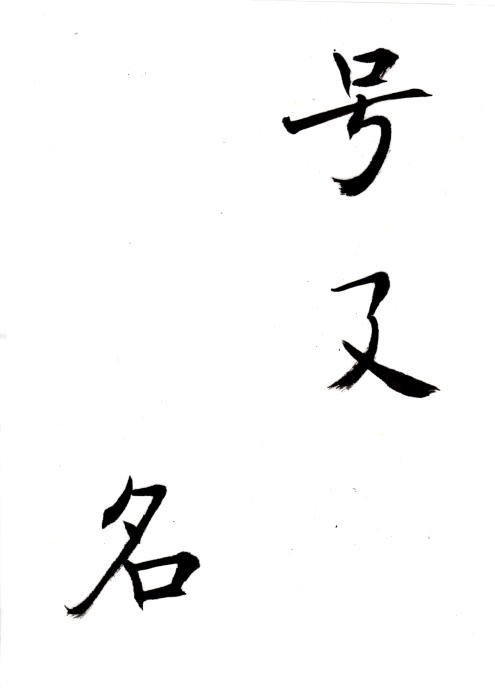 号又
名